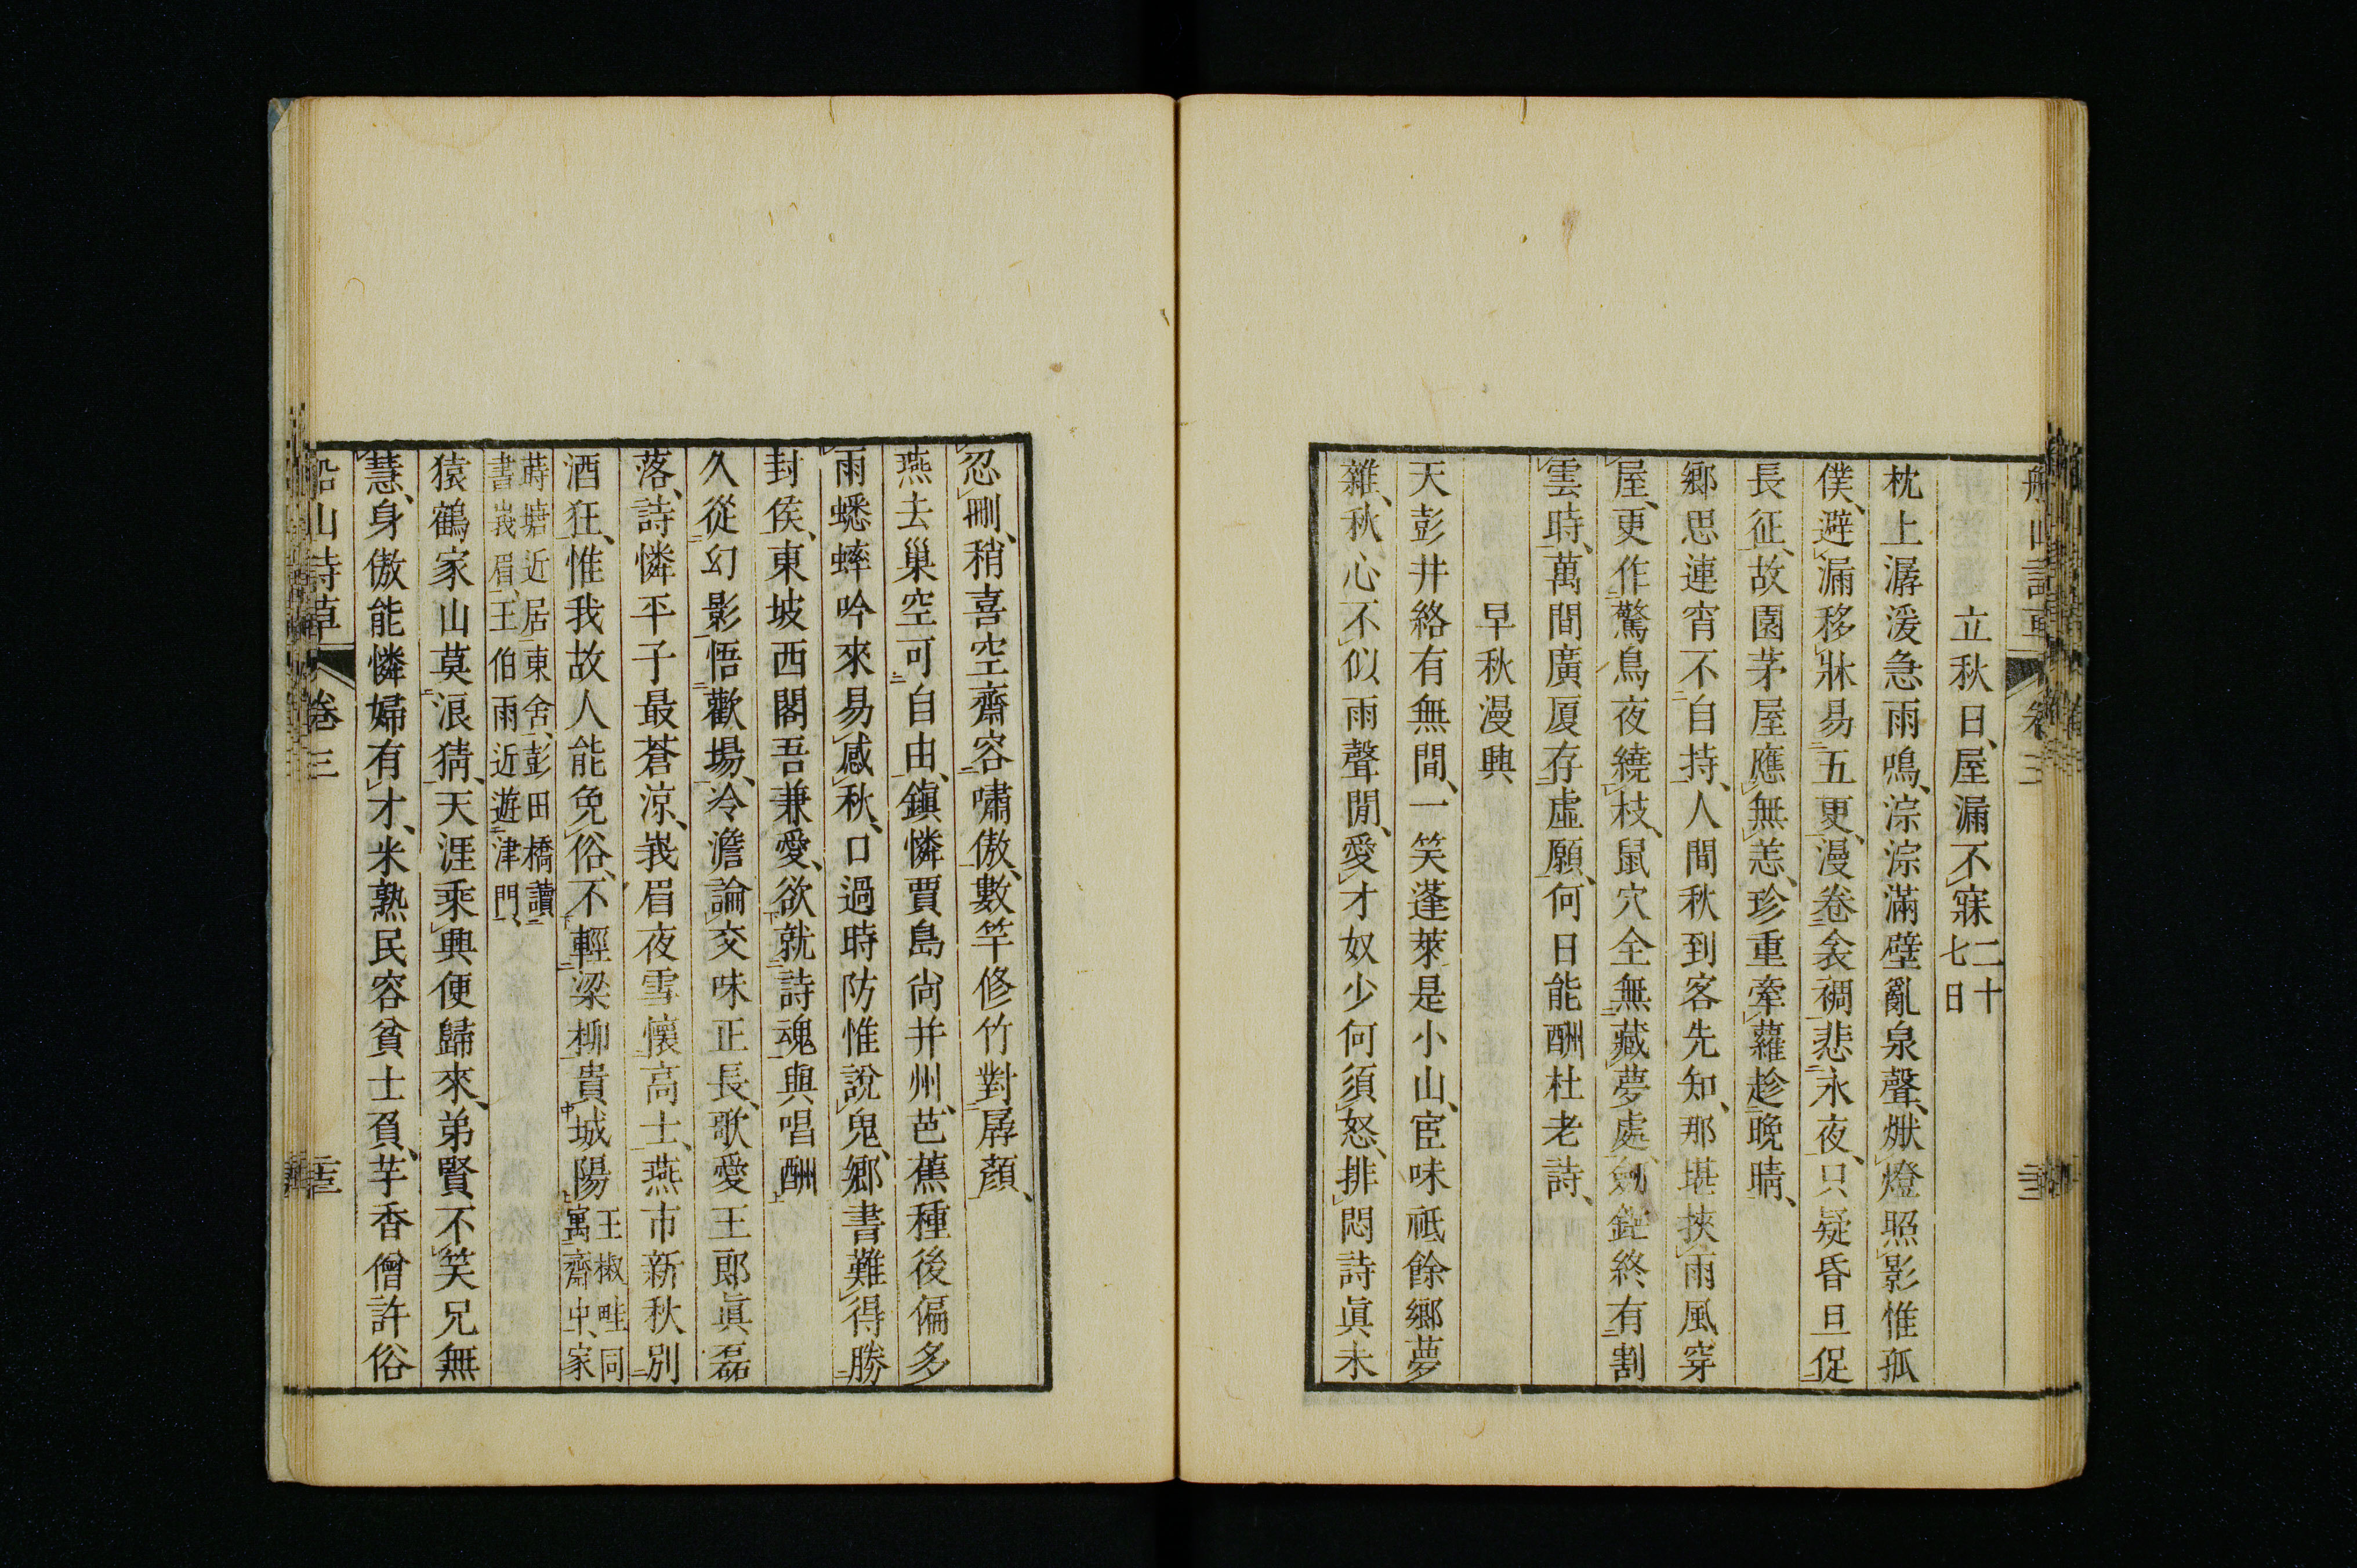 立秋日屋漏不寐二十七日
枕上潺湲急雨鳴淙淙滿壁亂泉聲燈照影惟孤
僕避漏移牀易五更漫卷衾裯悲永夜只疑昏旦促
長征故園茅屋應無恙珍重牽蘿趁晚晴
鄉思連宵不自持人間秋到客先知那堪挾雨風穿
屋更作驚烏夜繞枝鼠穴全無藏夢處劍鋩終有割
雲時萬間廣厦存虛願何日能酬杜老詩
早秋漫興
天彭井絡有無間一笑蓬萊是小山宦味祗餘鄉夢
雜秋心不似雨聲閒愛才奴少何須怒排悶詩眞未
忍刪稍喜空齋容嘯傲數竿修竹對孱顏
燕去巢空可自由鎮憐賈島尙并州芭蕉種後偏多
雨蟋蟀吟來易感秋口過時防惟說鬼鄉書難得勝
封侯東坡西閣吾兼愛欲就詩魂與唱酬
久從幻影悟歡場冷澹論交味正長歌愛王郎眞磊
落詩憐平子最蒼涼峩眉夜雪懷高士燕市新秋別
酒狂惟我故人能免俗不輕梁柳貴城陽王椒畦同寓齋中家
蒔塘近居東舍彭田橋讀書峩眉王伯雨近遊津門
猿鶴家山莫浪猜天涯乘興便歸來弟賢不笑兄無
慧身傲能憐婦有才米熟民容貧士負芋香僧許俗
船山詩草 卷三